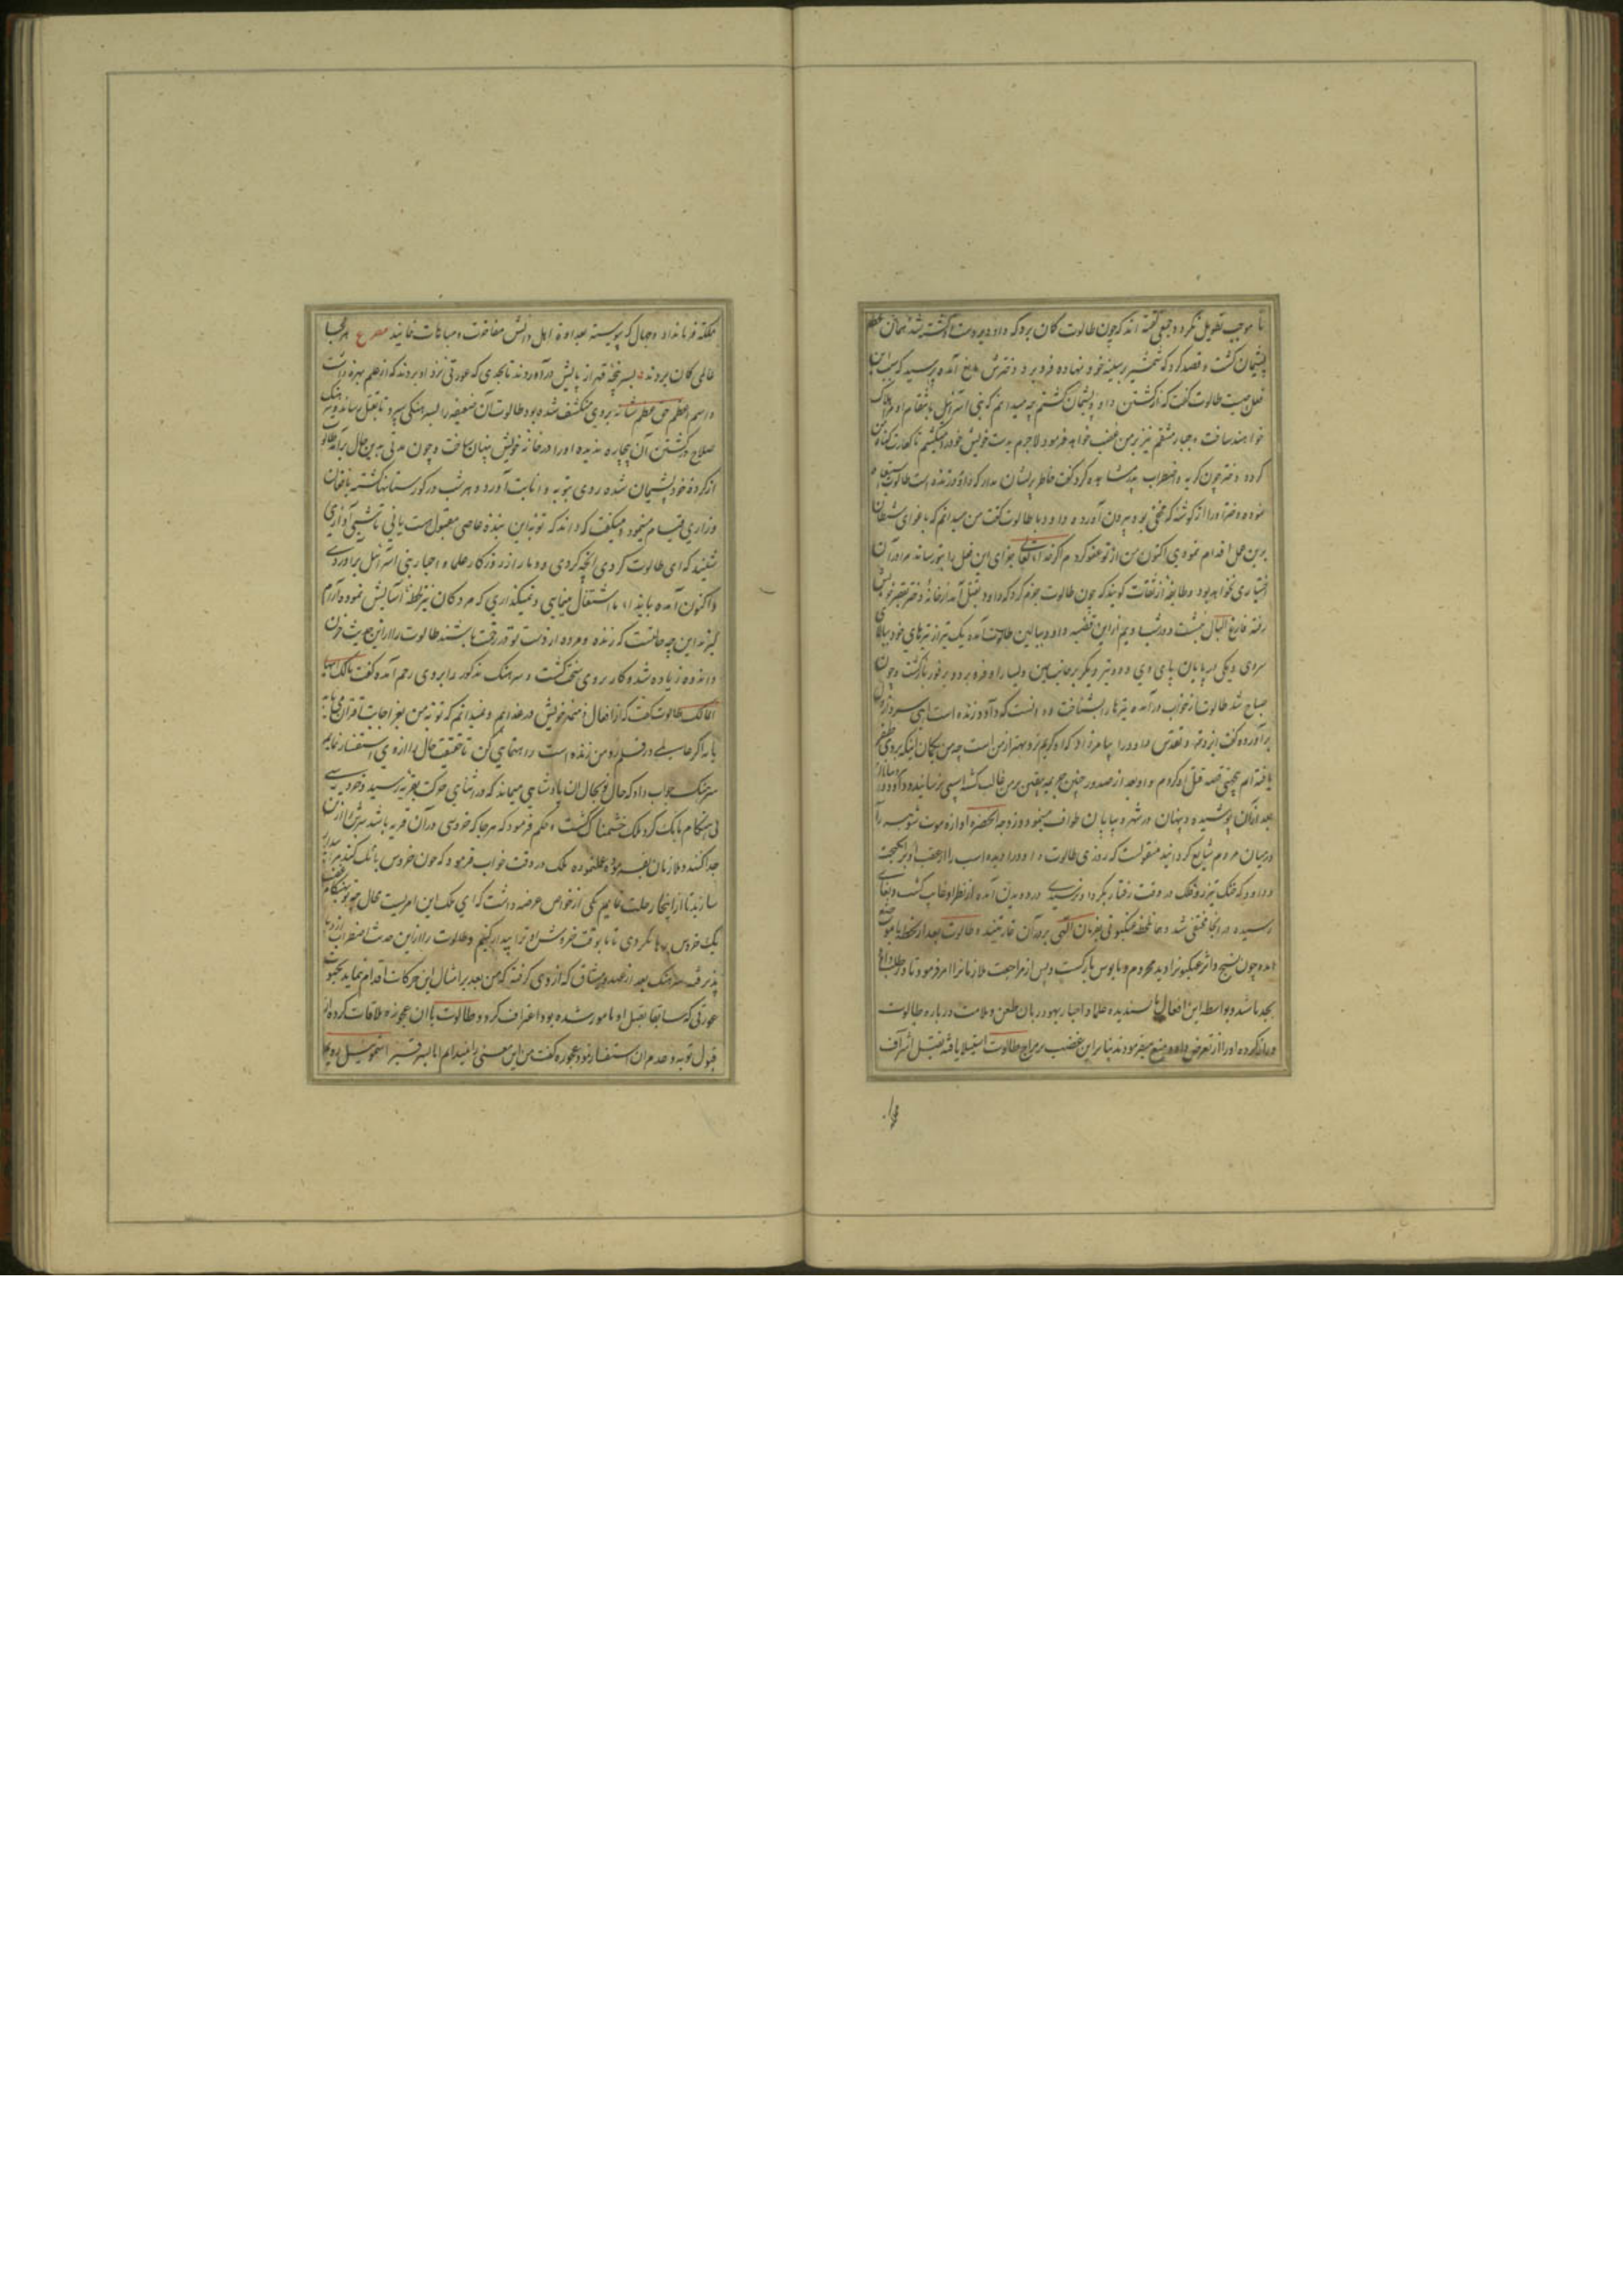 تا موجب تطویل نکرد و جمعی گفته اند که چون طالوت کان برد که داود بر دست او کشته شد همان لحظه
پشیمان کشت و قصد کرد که شمشیر بر سینه خود نهاده فرو برد دخترش مانع آمده پرسید که سبب این
فعل چیست طالوت گفت که از کشتن داود پشیمان کشتم چه میدانم که بنی اسرائیل بانتقام او مرا هلاک
خواهند ساخت و جبار منتقم نیز بر من غضب خواهد فرمود لاجرم بدست خویش خود را میکشم تا کفارت کناه من
کردد دختر چون کریه و اضطراب پدر مشاهده کرد گفت خاطر پریشان مدار که داود زنده است طالوت
نموده دختر او را از کوشه که مخفی بود بیرون آورد و داود با طالوت گفت من میدانم که باغوای شیطان
برین عمل اقدام نمودی اکنون من از تو عفو کردم اگر خدای تعالی جزای این فعل را بتو رساند مرا در آن
اختیاری نخواهد بود و طایفهٔ از ثقات کویند که چون طالوت جزم کرد که داود بقتل آمد از خانهٔ دختر بقصر خویش
رفته فارغ البال بنشست و در شب دویم از این قضیه داود ببالین طالوت آمده یک تیر از تیرهای خود ببالای
سر وی و یکی در پایان پای وی و دو تیر دیگر بر جانب یمین و یسار او فرو برد و بر فور بازکشت و چون
صباح شد طالوت از خواب درآمده تیرها را بشناخت و دانست که داود زنده است آهی سرد از درون
برآورده گفت ایزد تعالی و تقدس داود را بیامرزاد که او کریم تر و بهتر از من است چه من بکمان اینکه بر وی ظفر
یافته ام بحقیق قصد قتل او کردم و او بعد از صدور چنین جریمه بیقین بر من غالب کشته آسیبی نرسانید و داود
بعد از آن پوشیده و پنهان در شهر و بیابان طواف مینمود و زوجه آنحضرت آوازه موت شوهر را
در میان مردم شایع کردانید منقولست که روزی طالوت داود را دیده اسب را از عقب او برانکیخت
و داود که خنک تیزرو فلک در وقت رفتار بکرد او نرسیدی در دویدن آمده از نظر او غایب کشت و بغاری
رسیده در آنجا مختفی شد و همان لحظه عنکبوتی بفرمان الهی بر در آن غار تنیده طالوت بعد از لحظهٔ بآن موضع
آمده چون نسج و اثر عنکبوت را دید محروم و مایوس بازکشت و پس از مراجعت ملازمان را امر فرمود تا در طلب داود
بجد باشند و بواسطه این افعال ناپسندیده علما و احبار یهود زبان طعن و ملامت در باره طالوت
دراز کرده او را از تعرض داود منع میفرمودند بنابراین غضب بر مزاج طالوت استیلا یافته بقتل اشراف
مملکت فرمان داد و جهال که پیوسته بعداوت اهل دانش مفاخرت و مباهات نمایند مصرع هر کجا
عالمی کان بردند بسرپنجهٔ قهر از پایش درآوردند تا بحدی که عورتی نزد او بردند که از علم بهره داشت
و اسم اعظم حق عظم شانه بر وی منکشف شده بود طالوت آن ضعیفه را بسرهنکی سپرد تا بقتل رساند و سرهنک
صلاح در کشتن آن بیچاره ندیده او را در خانه خویش پنهان ساخت و چون مدتی بدین حال برآمد طالوت
از کردهٔ خود پشیمان شده روی بتوبه و انابت آورد و هر شب در کورستانها کشته بافغان
و زاری قیام مینمود و میکفت که داند که توبه این بنده عاصی مقبول هست یا نی تا شبی آوازی
شنید که ای طالوت کردی آنچه کردی و دمار از روزکار علماء و احبار بنی اسرائیل برآوردی
و اکنون آمده بایذاء ما اشتغال مینمایی و نمیکذاری که مردکان نیز لحظهٔ آسایش نموده آرام
کیرند این چه حالتست که زنده و مرده از دست تو در زحمت باشند طالوت را از این حدیث خون
و اندوه زیاده شد و کار بر وی سخت کشت و سرهنک مذکور را بر وی رحم آمده گفت مالک ایها
الملک طالوت گفت که از افعال منکر خویش در عذابم و نمیدانم که توبه من بعز اجابت اقتران می یابد
یا نه اگر عالمی در قلمرو من زنده است راهنمایی کن تا حقیقت حال را از وی استفسار نمایم
سرهنک جواب داد که حال تو بحال آن پادشاهی میماند که در اثنای حرکت بقریه رسید و خروسی
بی هنکام بانک کرد ملک خشمناک کشت و حکم فرمود که هر جا که خروسی در آن قریه باشد سرش از تن
جدا کنند و ملازمان بفرموده عمل نموده ملک در وقت خواب فرمود که چون خروس بانک کند مرا بیدار
سازید تا از اینجا رحلت نمایم یکی از خواص عرضه داشت که ای ملک این امریست محال چه تو
یک خروس رها نکردی تا ما بوقت خروش او ترا بیدار کنیم و طالوت را از این حدیث اضطراب
پذیرفت سرهنک بعد از عهد و میثاق که از وی کرفته که من بعد بر امثال این حرکات اقدام ننماید بحیوة
عورتی که سابقا بقتل او مامور شده بود اعتراف کرد و طالوت با آن عجوزه ملاقات کرده از
قبول توبه و عدم آن استفسار نمود عجوزه گفت من این معنی را نمیدانم اما بسر قبر اشموئیل رویم